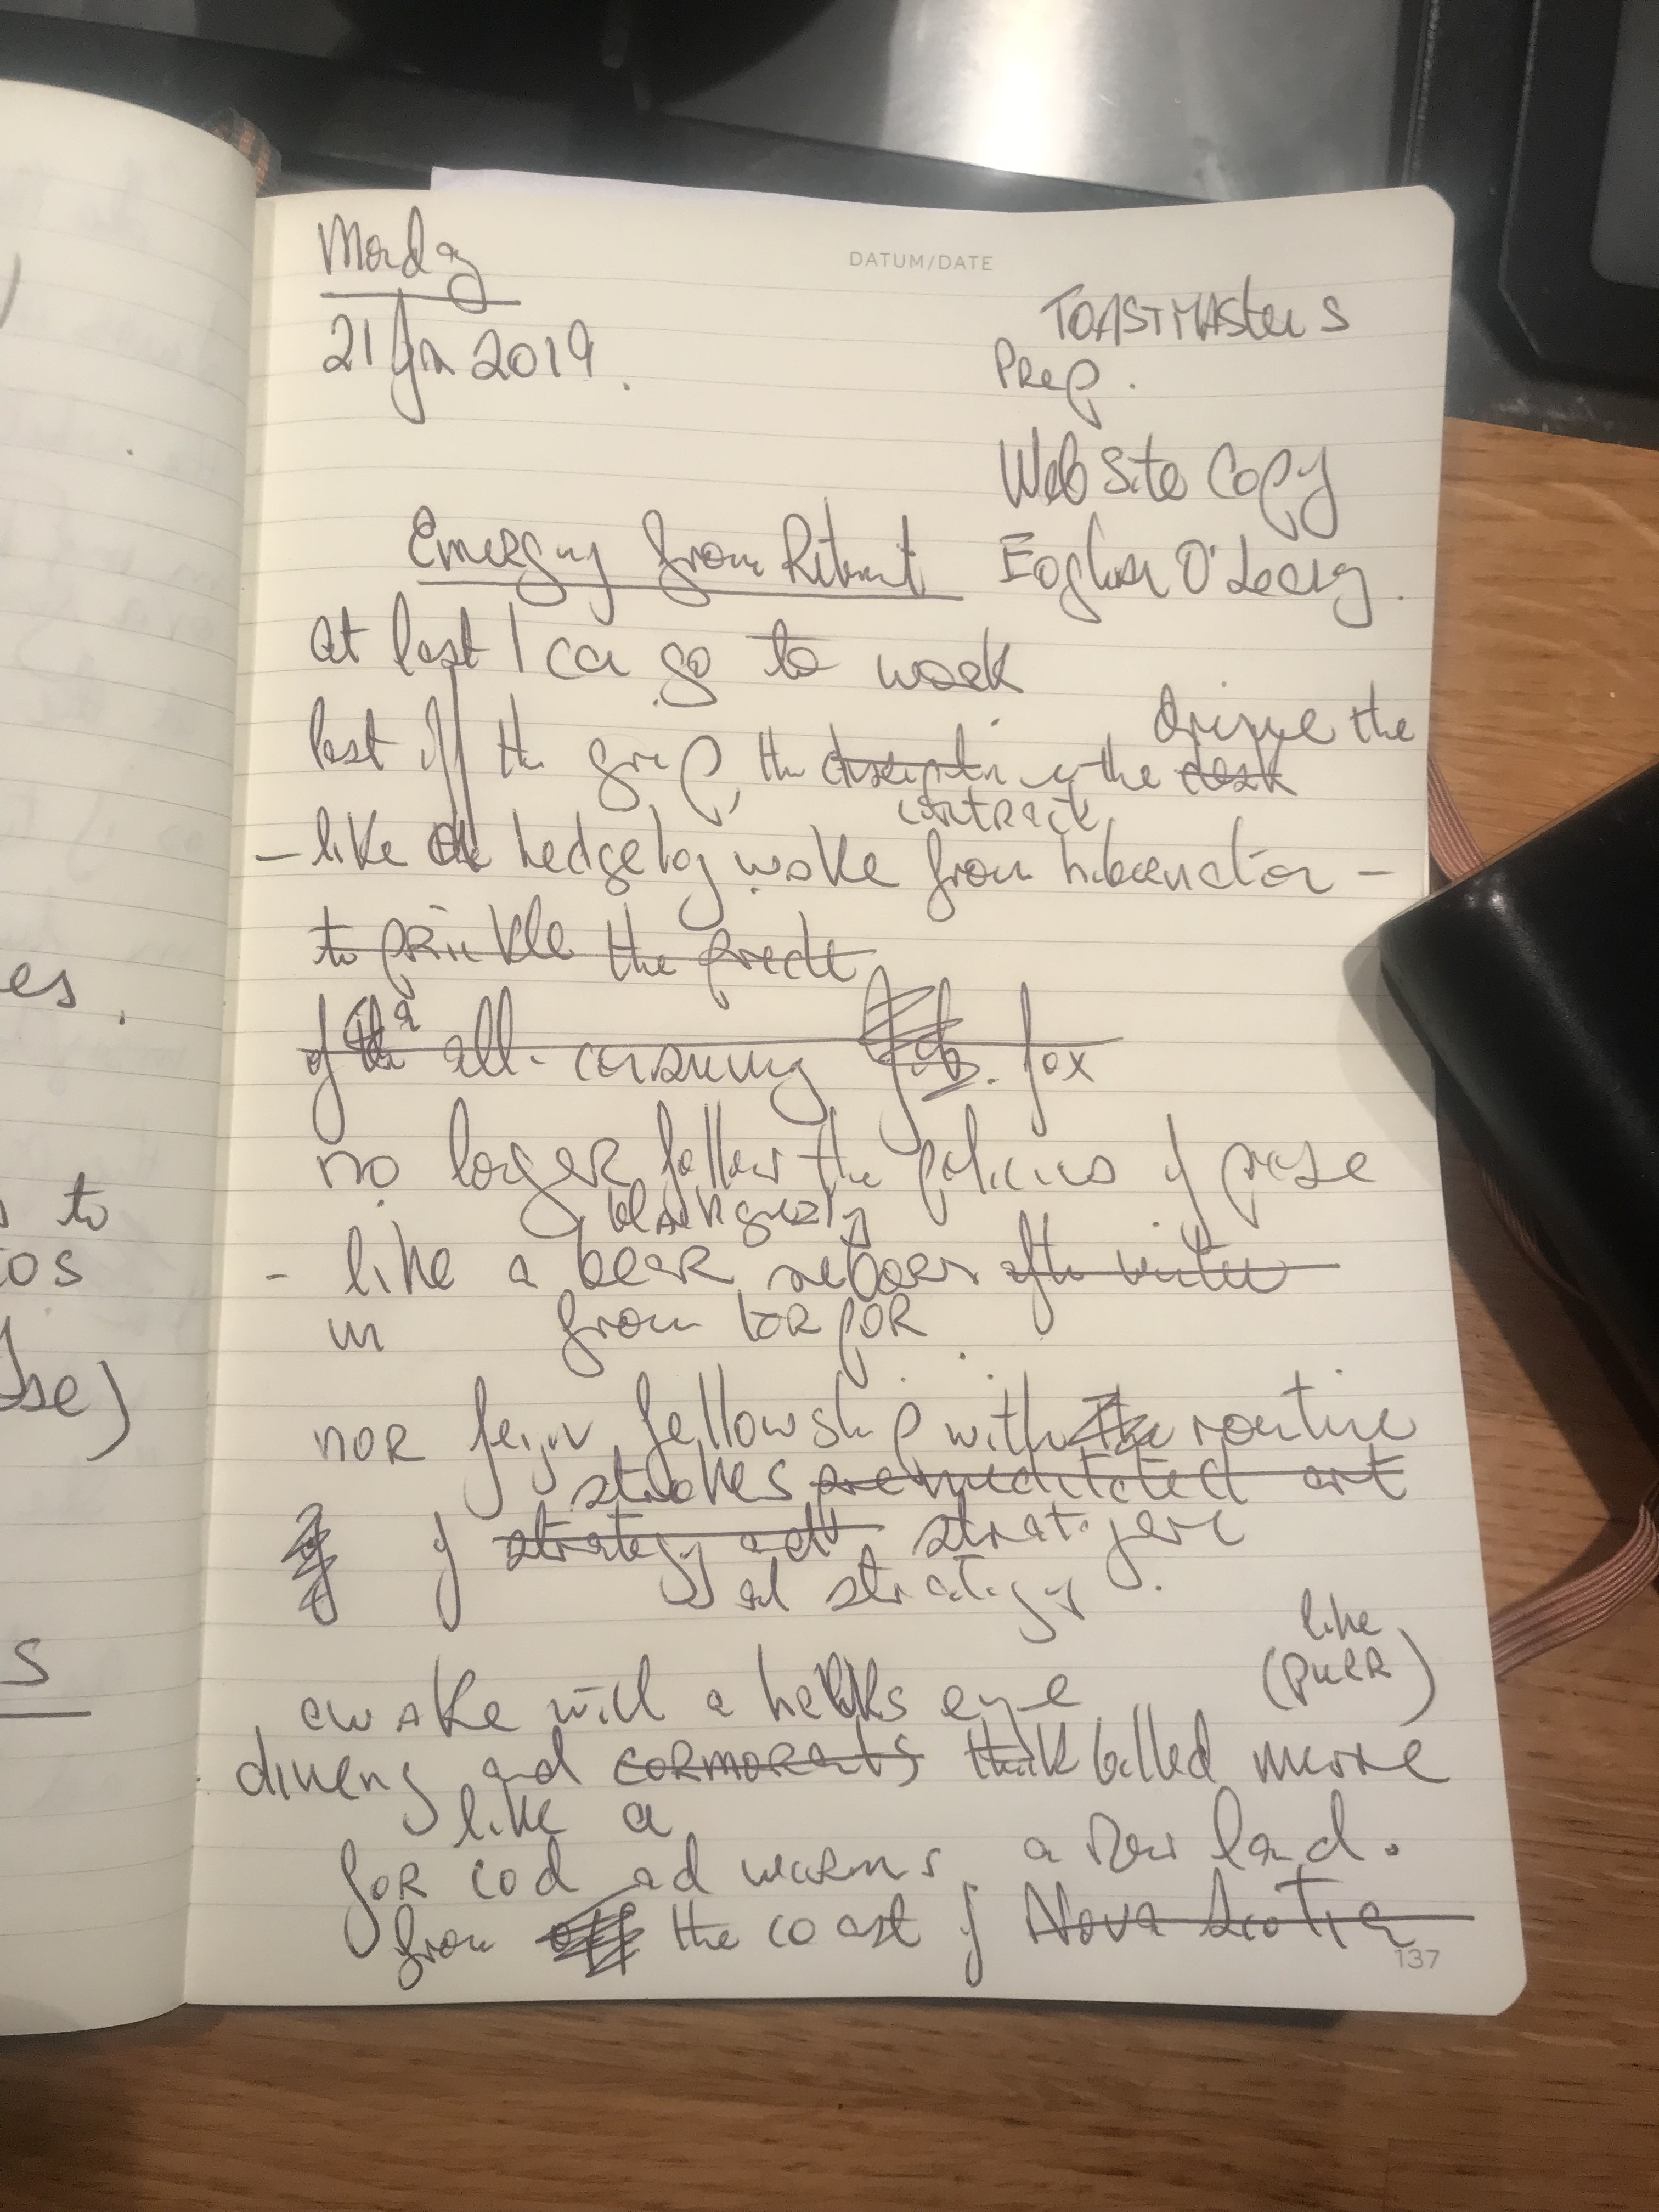 Monday
DATUM/DATE
21 Jan 2019.
TOASTMASTERS
Prep.
Web site copy
Emerging from Retreat
Eoghan O'Leary.
at last I can go to work
drive the
last off the grip, the the desk
contract
- like the hedgehog woke from hibernation -
to prickle the
of a all-consuming fox
no longer follow the policies of prose
- like a bear reborn after winter
in from torpor
nor feign fellowship with the routine
strokes premeditated art
of strategy and
and strategy.
like
awake with a hawks eye
(puer)
and cormorants thick billed murre
like a
for cod and worms a new land.
from off the coast of Nova Scotia
137
es.
s to
tos
se)
s